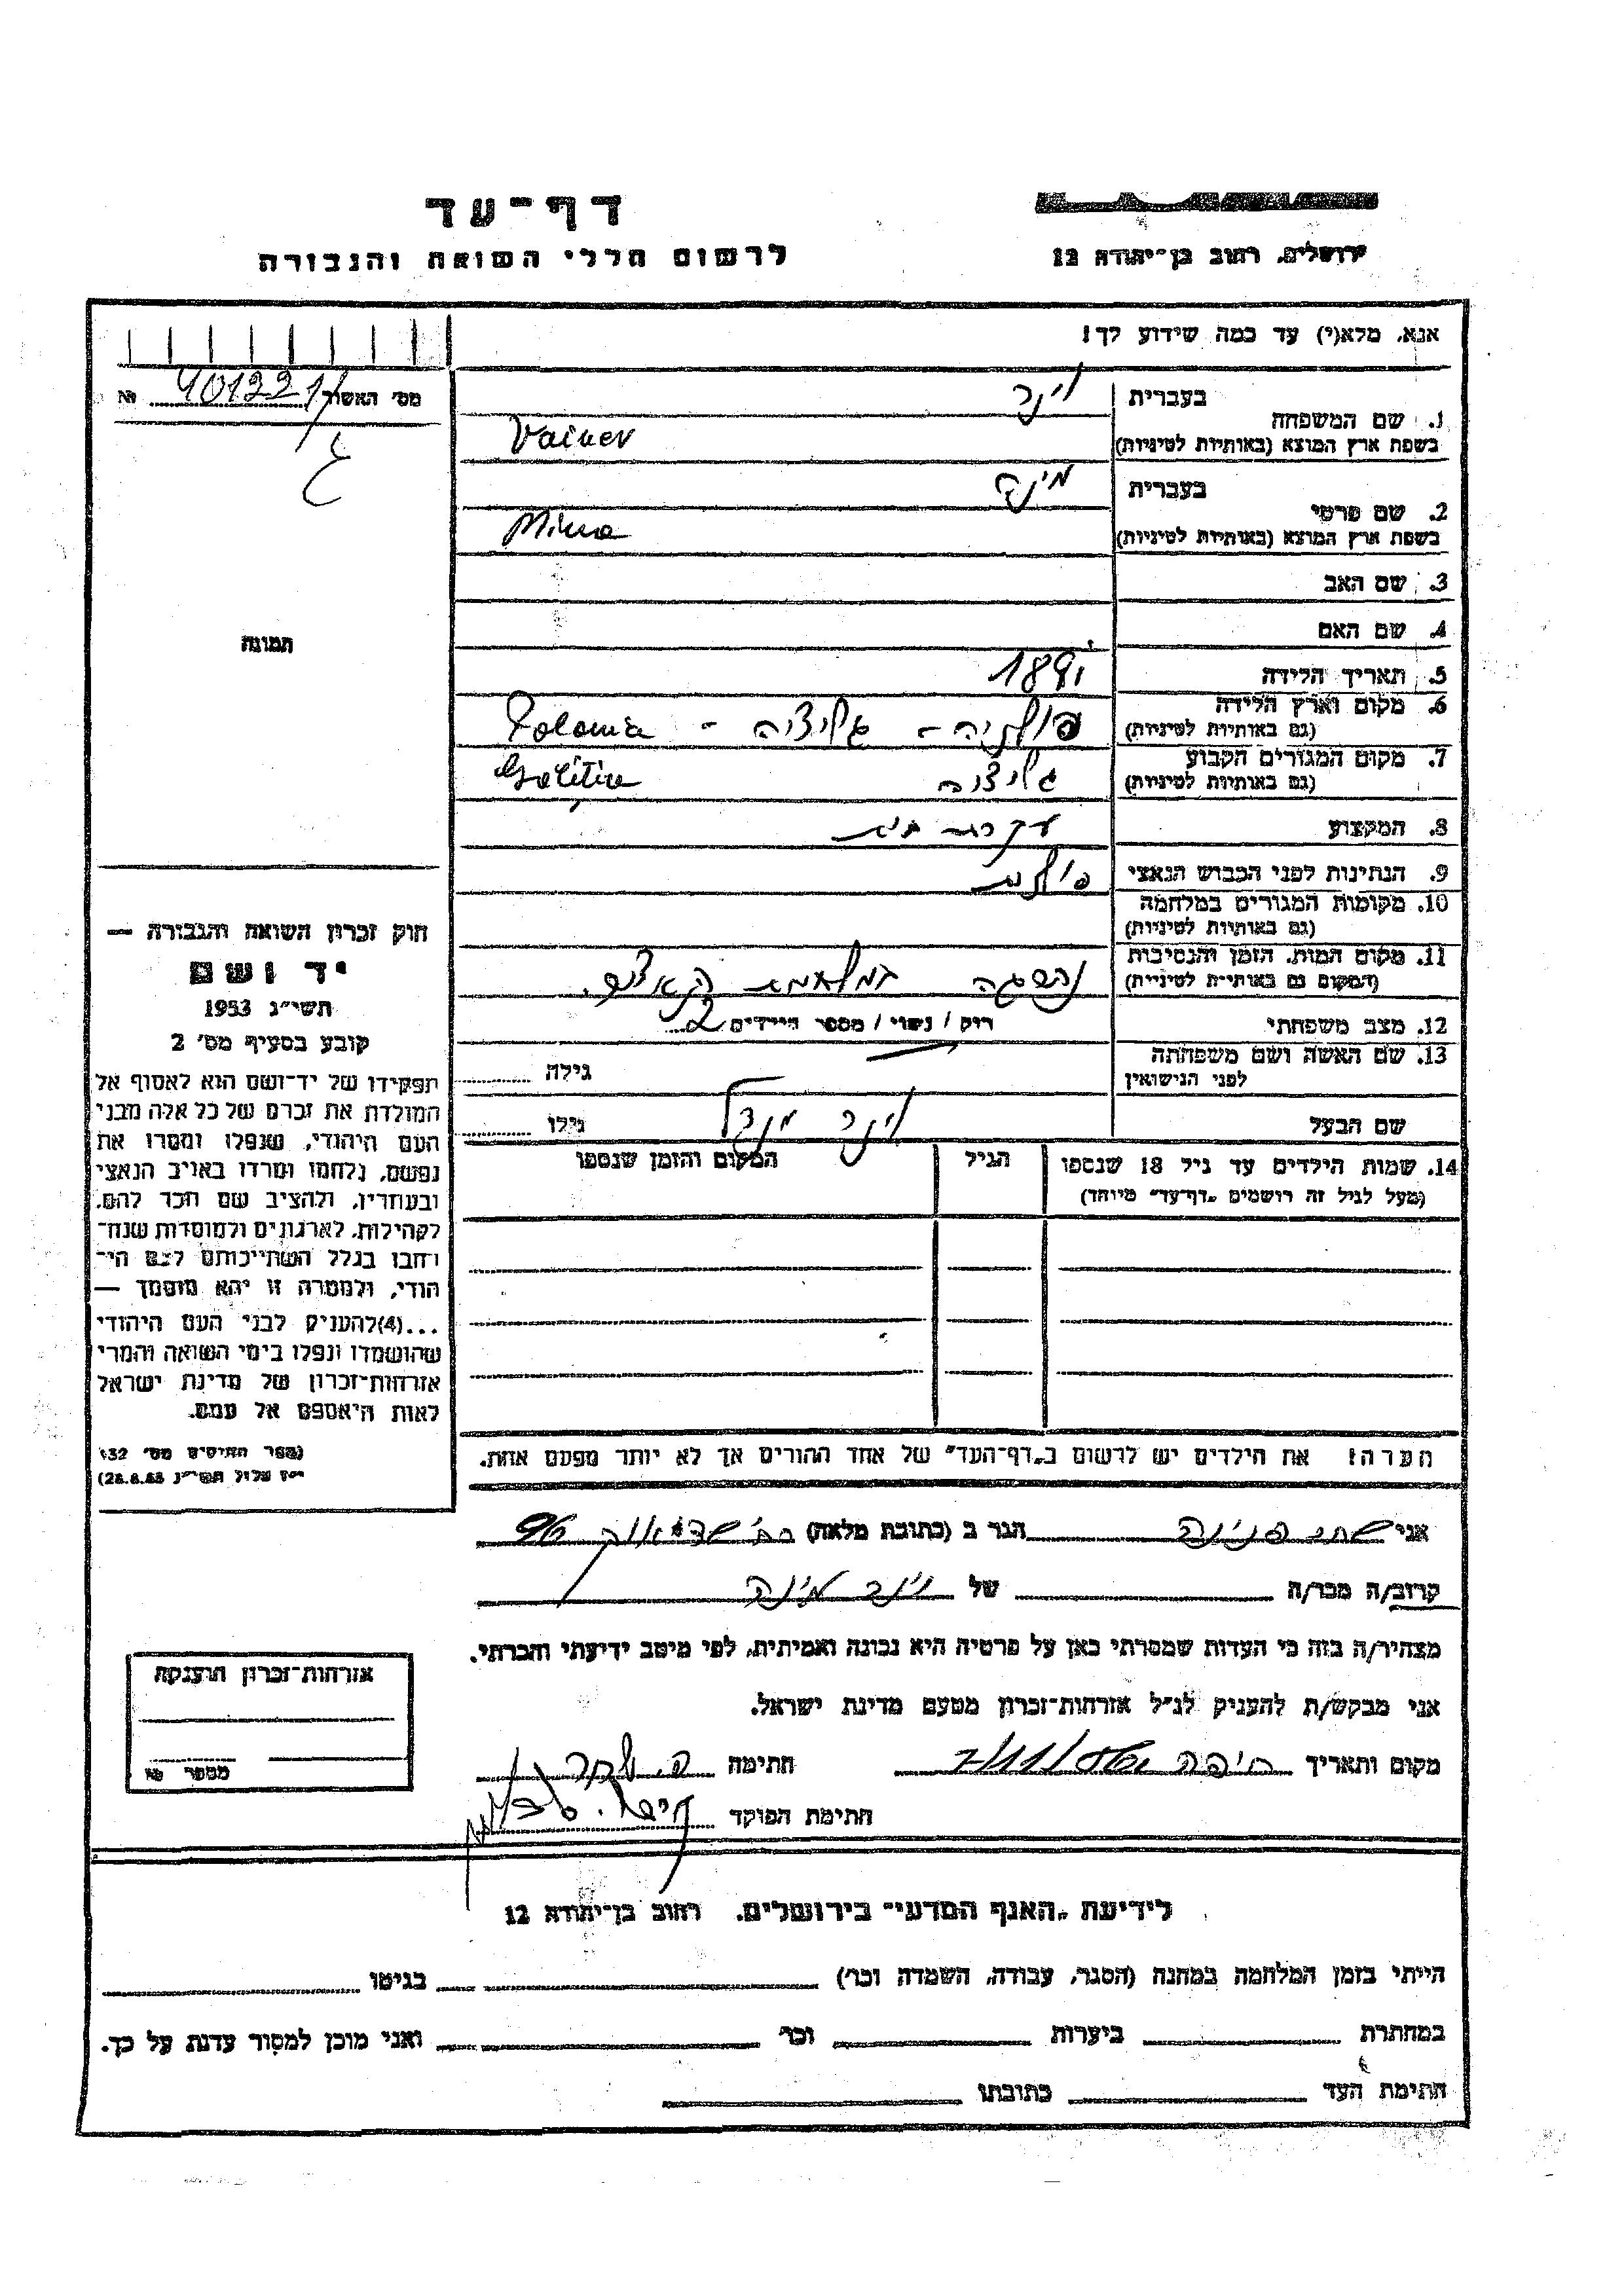 דף-עד
לרשום חללי השואה והגבורה
ירושלים, רחוב בן-יהודה 12
אנא, מלא(י) עד כמה שידוע לך!
מס' האשור 401221 №
1. שם המשפחה
בעברית וינר
בשפת ארץ המוצא (באותיות לטיניות) Vainer
2. שם פרטי
בעברית מינה
בשפת ארץ המוצא (באותיות לטיניות) Mina
3. שם האב
4. שם האם
תמונה
5. תאריך הלידה 1891
6. מקום וארץ הלידה פולניה - גליציה - Polonia
(גם באותיות לטיניות)
7. מקום המגורים הקבוע גליציה Galitia
(גם באותיות לטיניות)
8. המקצוע עקרת בית
9. הנתינות לפני הכבוש הנאצי פולנית
10. מקומות המגורים במלחמה
(גם באותיות לטיניות)
11. מקום המות, הזמן והנסיבות נהרגה במלחמת הנאצים.
(המקום גם באותיות לטיניות)
12. מצב משפחתי רוק / נשוי / מספר הילדים 2
13. שם האשה ושם משפחתה
לפני הנישואין
גילה
שם הבעל וינר מנדל גילו
14. שמות הילדים עד גיל 18 שנספו הגיל המקום והזמן שנספו
(מעל לגיל זה רושמים "דף-עד" מיוחד)
הערה! את הילדים יש לרשום ב"דף-העד" של אחד ההורים אך לא יותר מפעם אחת.
חוק זכרון השואה והגבורה —
יד ושם
תשי"ג 1953
קובע בסעיף מס' 2
תפקידו של יד-ושם הוא לאסוף אל
המולדת את זכרם של כל אלה מבני
העם היהודי, שנפלו ומסרו את
נפשם, נלחמו ומרדו באויב הנאצי
ובעוזריו, ולהציב שם וזכר להם,
לקהילות, לארגונים ולמוסדות שנח-
רחבו בגלל השתייכותם לעם הי-
הודי, ולמטרה זו יהא מוסמך —
...(4)להעניק לבני העם היהודי
שהושמדו ונפלו בימי השואה והמרי
אזרחות-זכרון של מדינת ישראל
לאות היאספם אל עמם.
(ספר החוקים מס' 132
י"ז אלול תשי"ג 28.8.53)
אני פנינה הגר ב (כתובת מלאה)
קרוב/ה מכר/ה של וינר מינה
מצהיר/ה בזה כי העדות שמסרתי כאן על פרטיה היא נכונה ואמיתית, לפי מיטב ידיעתי והכרתי.
אני מבקש/ת להעניק לנ"ל אזרחות-זכרון מטעם מדינת ישראל.
מקום ותאריך חיפה חתימה
חתימת הפוקד
אזרחות-זכרון הוענקה
מספר №
לידיעת "האגף המדעי" בירושלים, רחוב בן-יהודה 12
הייתי בזמן המלחמה במחנה (הסגר, עבודה, השמדה וכו') בגיטו
במחתרת ביערות וכו' ואני מוכן למסור עדות על כך.
חתימת העד כתובתו